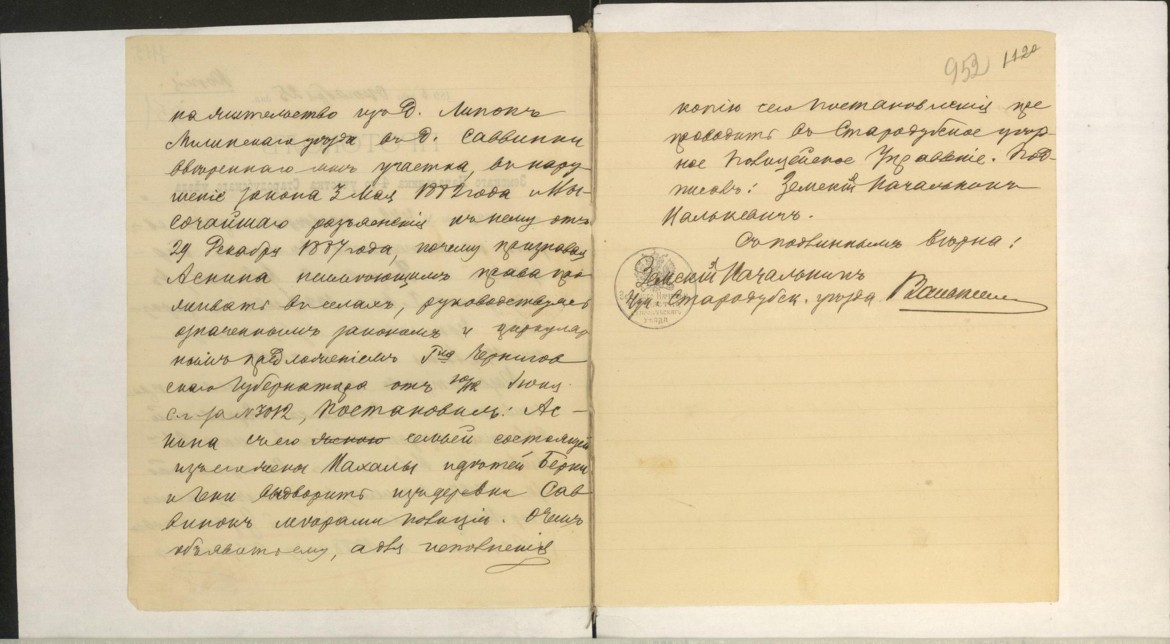 на жительство изъ д. Липокъ
Мглинскаго уѣзда въ д. Саввинки
ввѣреннаго мнѣ участка, въ нару
шеніе закона 3 Мая 1882 года и Вы-
сочайшаго разъясненія къ нему отъ
29 Декабря 1887 года, почему признавая
Аснина неимѣющимъ права про
живать въ селахъ, руководствуясь
означеннымъ закономъ и циркуляр
нымъ предложеніемъ Г-на Чернигов
скаго Губернатора отъ Іюня
с.г. за № 3012, Постановилъ: Ас-
нина съ его семьей состоящей
изъ его жены Махалы и дѣтей Берки
и Гени выдворить изъ деревни Сав
винокъ мѣрами полиціи. О чемъ
объявить ему, а для исполненія
952
1120
копію сего постановленія пре
проводить въ Стародубское уѣзд
ное Полицейское Управленіе. Под
писалъ: Земскій Начальникъ
Налькевичъ.
Съ подлиннымъ вѣрно:
Земскій Начальникъ
4 уч. Стародубск. уѣзда